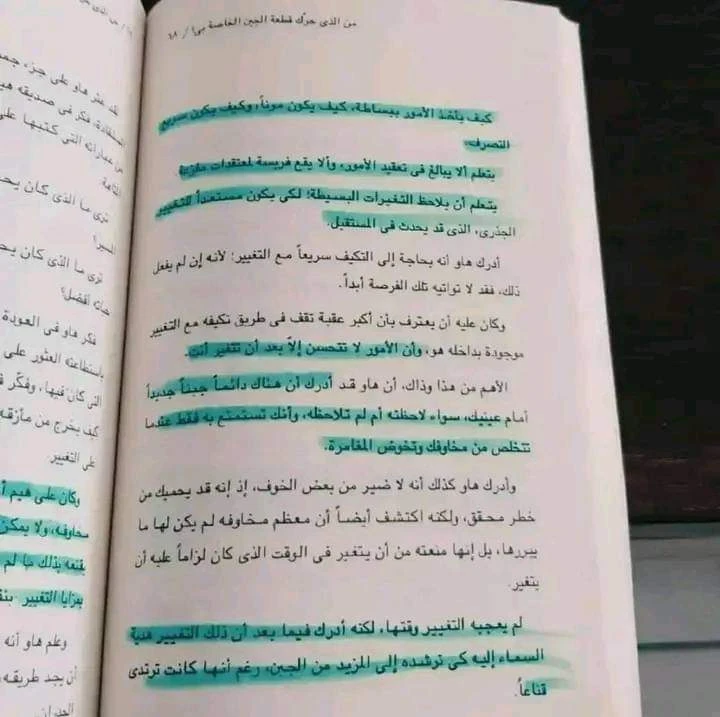 من الذى حرك قطعة الجبن الخاصة بى؟ / ٦٨
كيف يأخذ الأمور ببساطة، كيف يكون مرناً، وكيف يكون سريع
التصرف.
يتعلم ألا يبالغ فى تعقيد الأمور، وألا يقع فريسة لمعتقدات مفزعة
يتعلم أن يلاحظ التغيرات البسيطة؛ لكى يكون مستعداً للتغيير
الجذرى، الذى قد يحدث فى المستقبل.
أدرك هاو أنه بحاجة إلى التكيف سريعاً مع التغيير؛ لأنه إن لم يفعل
ذلك، فقد لا تواتيه تلك الفرصة أبداً.
وكان عليه أن يعترف بأن أكبر عقبة تقف فى طريق تكيفه مع التغيير
موجودة بداخله هو، وأن الأمور لا تتحسن إلاَّ بعد أن تتغير أنت.
الأهم من هذا وذاك، أن هاو قد أدرك أن هناك دائماً جبناً جديداً
أمام عينيك، سواء لاحظته أم لم تلاحظه، وأنك تستمتع به فقط عندما
تتخلص من مخاوفك وتخوض المغامرة.
وأدرك هاو كذلك أنه لا ضير من بعض الخوف، إذ إنه قد يحميك من
خطر محقق، ولكنه اكتشف أيضاً أن معظم مخاوفه لم يكن لها ما
يبررها، بل إنها منعته من أن يتغير فى الوقت الذى كان لزاماً عليه أن
يتغير.
لم يعجبه التغيير وقتها، لكنه أدرك فيما بعد أن ذلك التغيير هبة
السماء إليه كى ترشده إلى المزيد من الجبن، رغم أنها كانت ترتدى
قناعاً.
لقد عثر هاو على جزء
فكر فى صديقه
عباراته التى كتبها على
ترى ما الذى كان
ترى ما الذى كان
أفضل؟
فكر هاو فى العودة
باستطاعته العثور على
التى كان فيها، وفكّر
كيف يخرج من مأزقه
على التغيير
وكان على هيم
مخاوفه، ولا يمكن
يقنعه بذلك ما لم
بمزايا التغيير
وعلم هاو أنه
أن يجد طريقه
الجدران